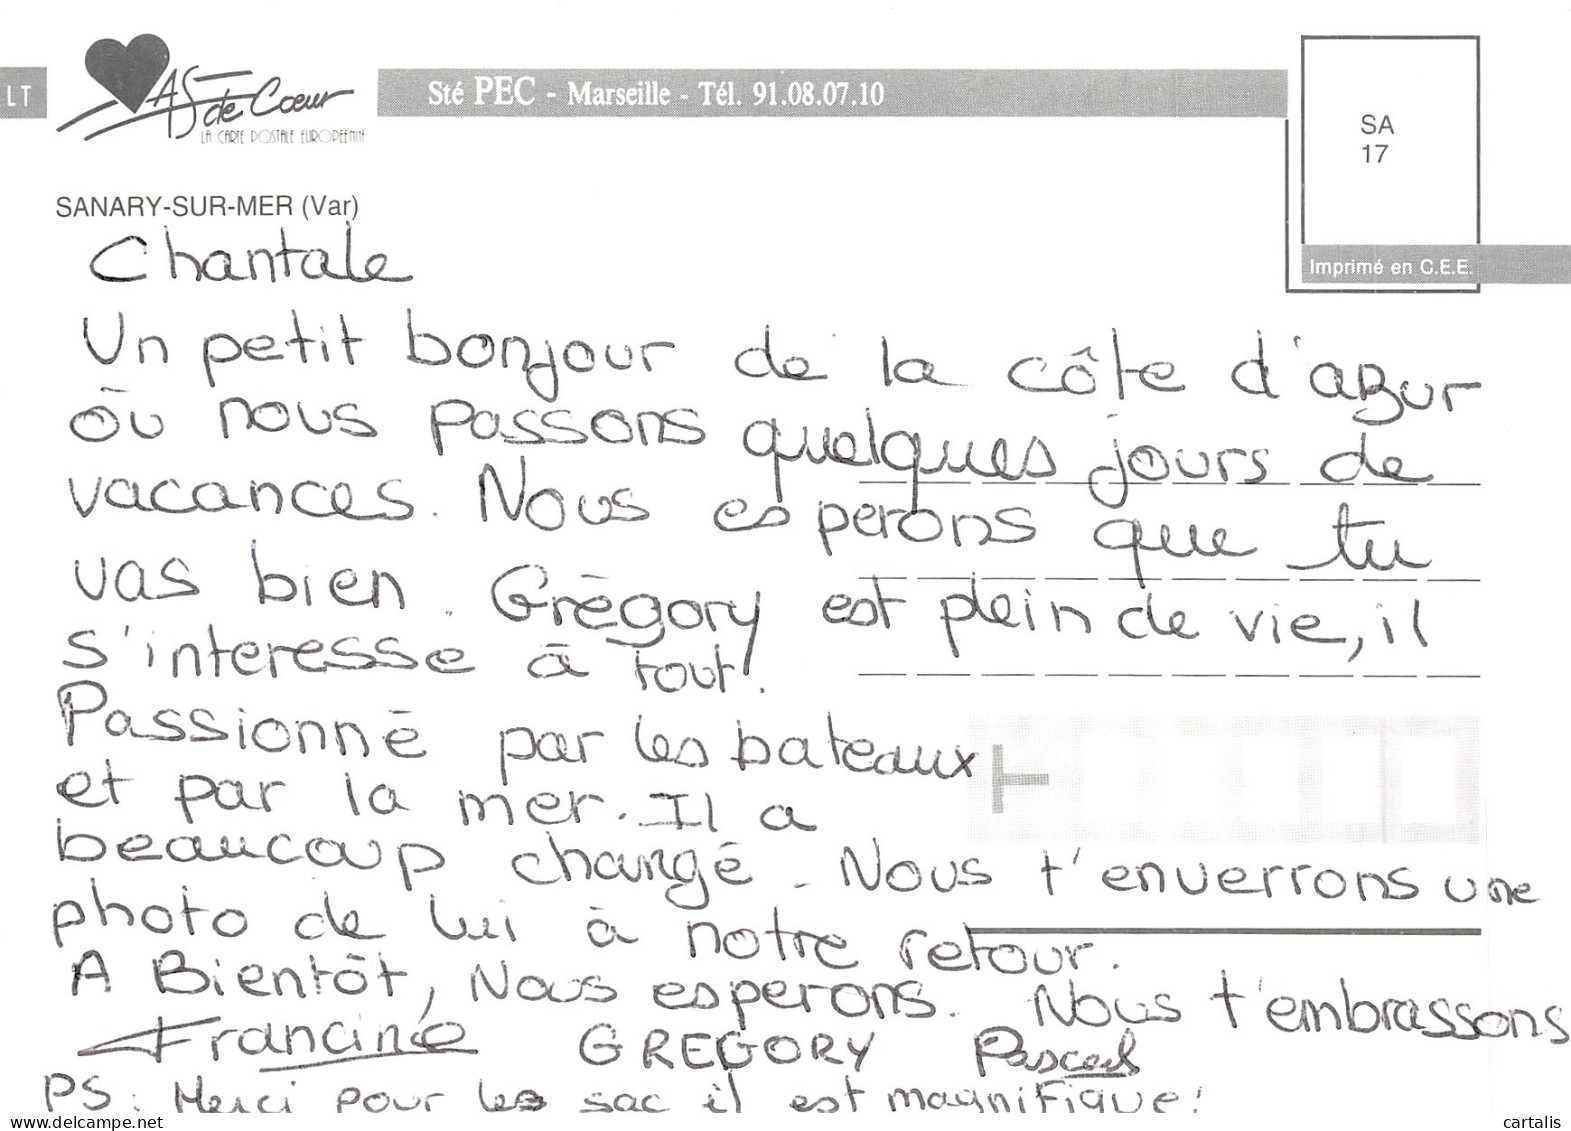 LT
As de Coeur
LA CARTE POSTALE EUROPEENNE
Sté PEC - Marseille - Tél. 91.08.07.10
SA
17
Imprimé en C.E.E.
SANARY-SUR-MER (Var)
Chantale
Un petit bonjour de la côte d'azur
où nous passons quelques jours de
vacances. Nous esperons que tu
vas bien. Grégory est plein de vie, il
s'interesse à tout!
Passionné par les bateaux
et par la mer. Il a
beaucoup changé. Nous t'enverrons une
photo de lui à notre retour.
A Bientôt, Nous esperons. Nous t'embrassons
Francine GREGORY Pascal
PS: Merci pour le sac il est magnifique!
cartalis